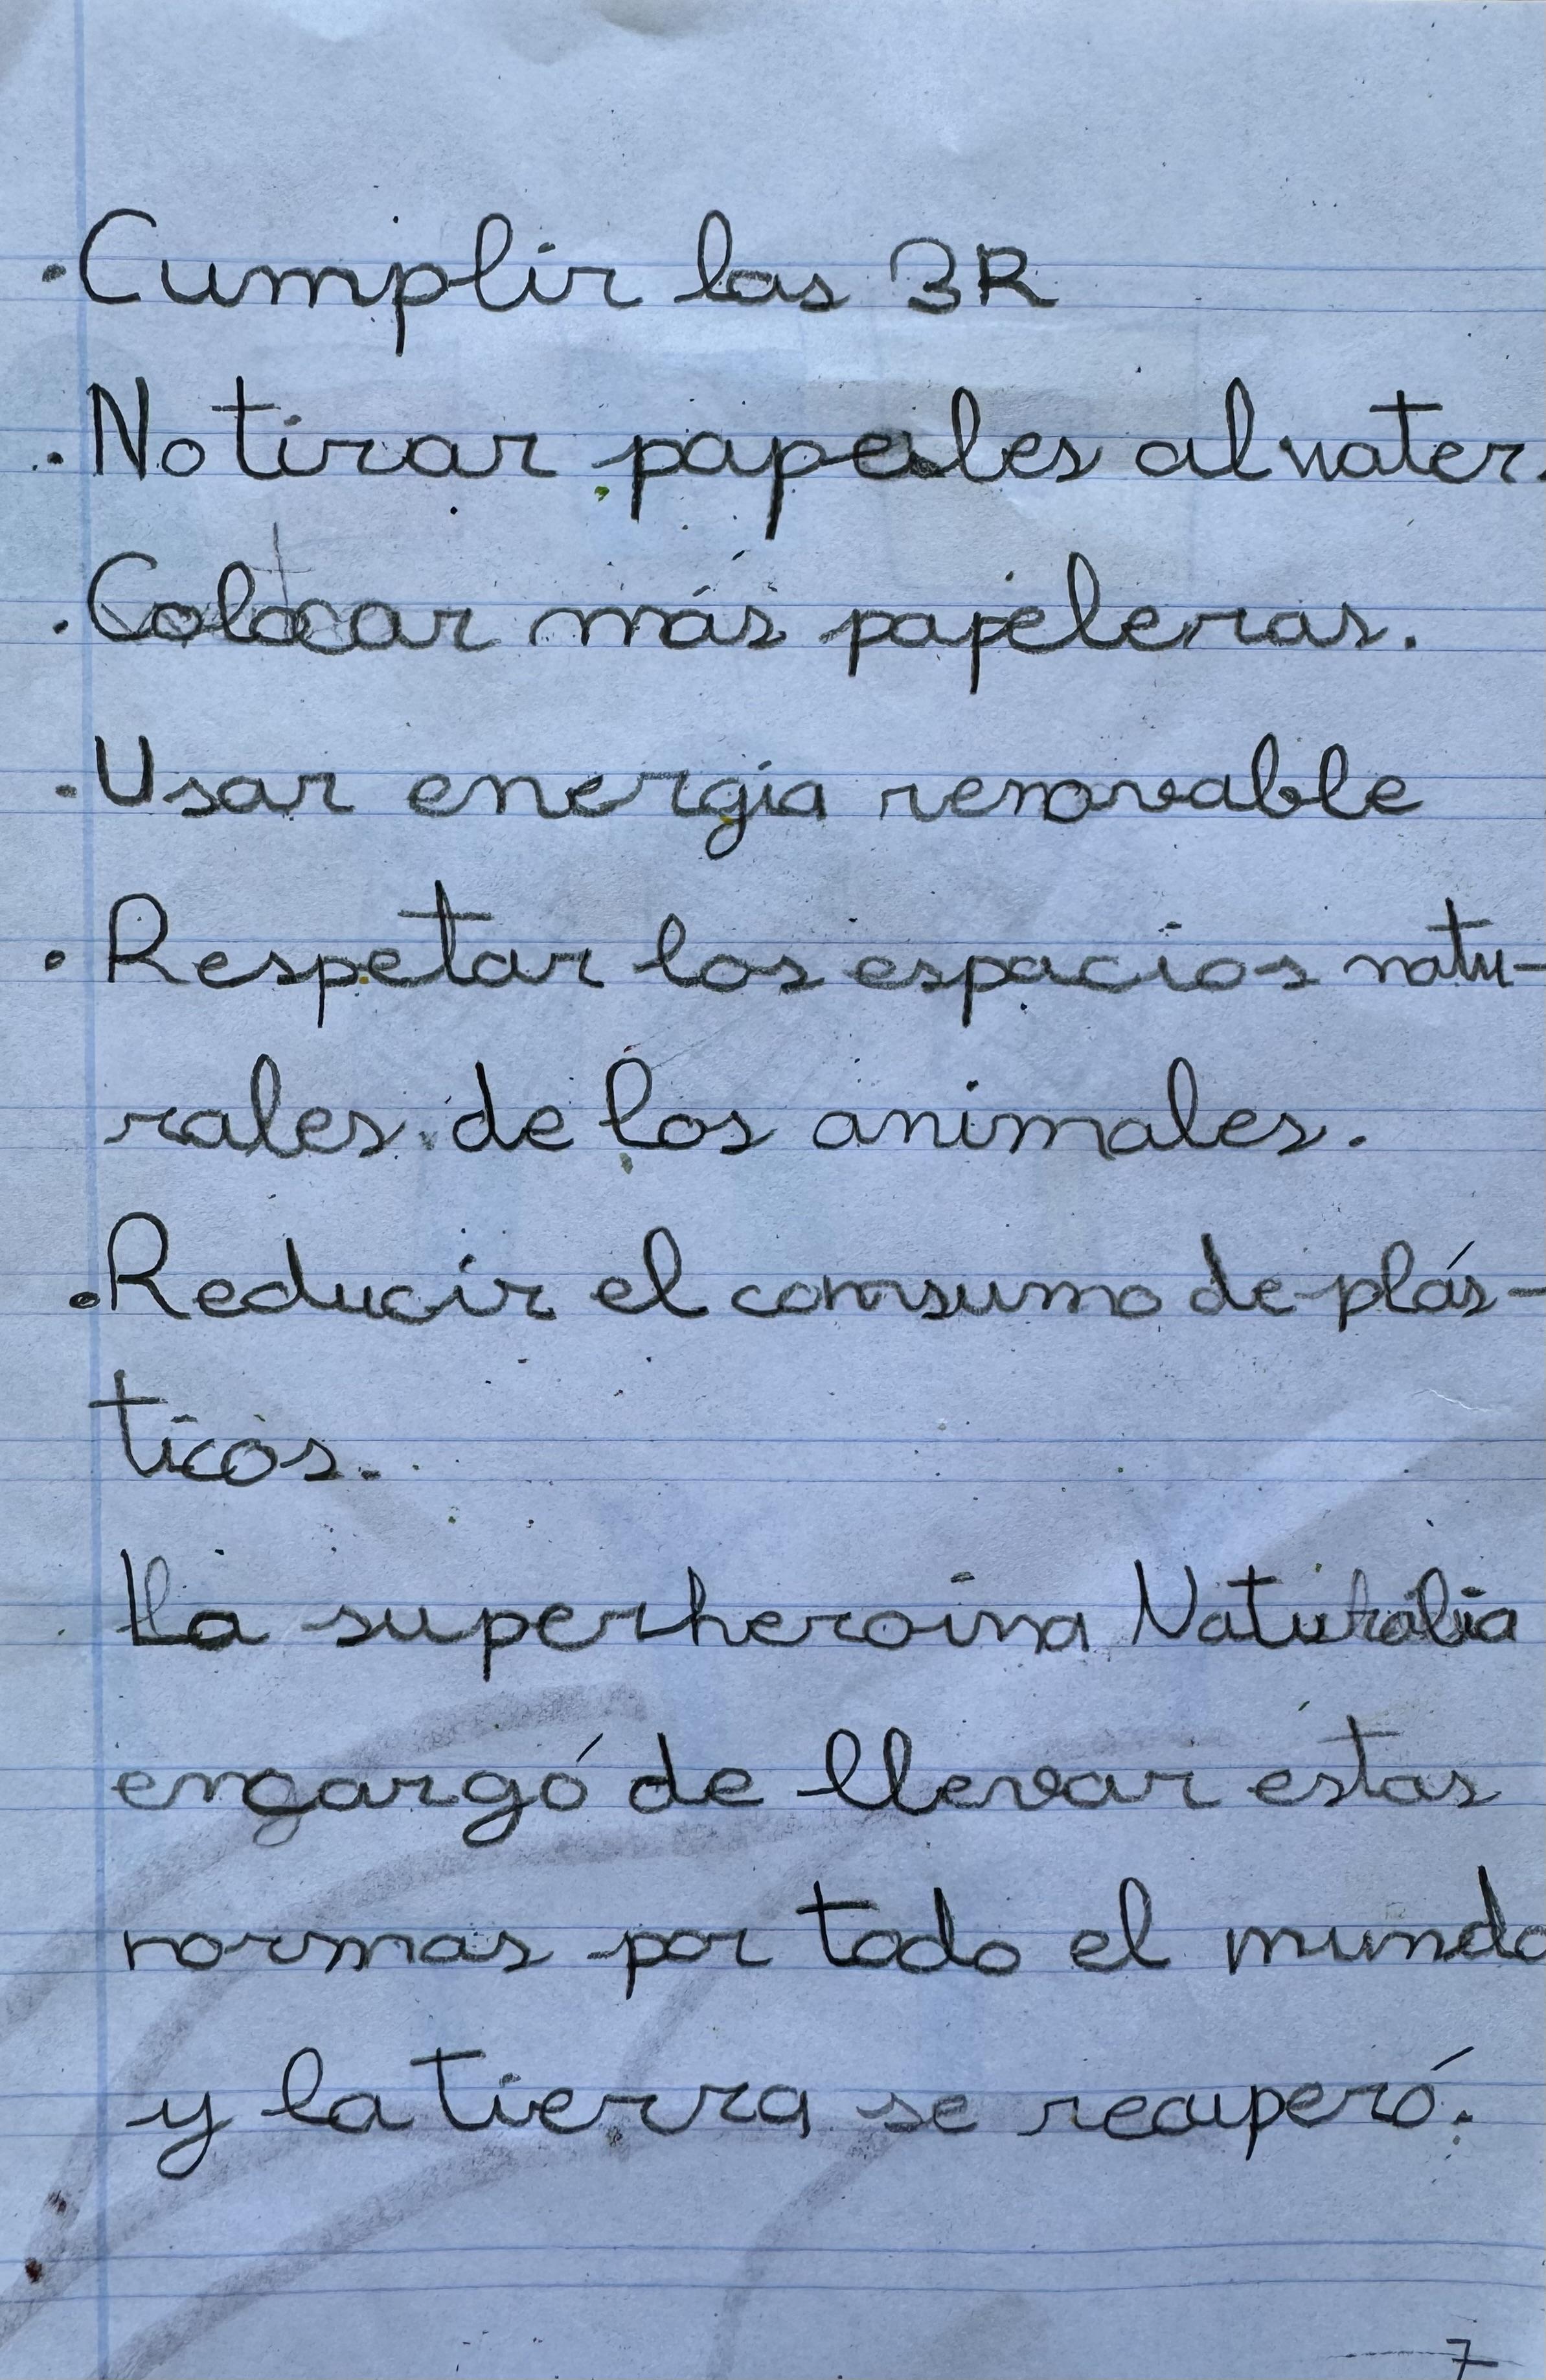 ·Cumplir las 3R
·No tirar papeles al water.
·Colocar más papeleras.
·Usar energía renovable
·Respetar los espacios natu-
rales de los animales.
·Reducir el consumo de plás-
ticos.
La superheroina Naturalia
encargó de llevar estas
normas por todo el mundo
y la tierra se recuperó.
7